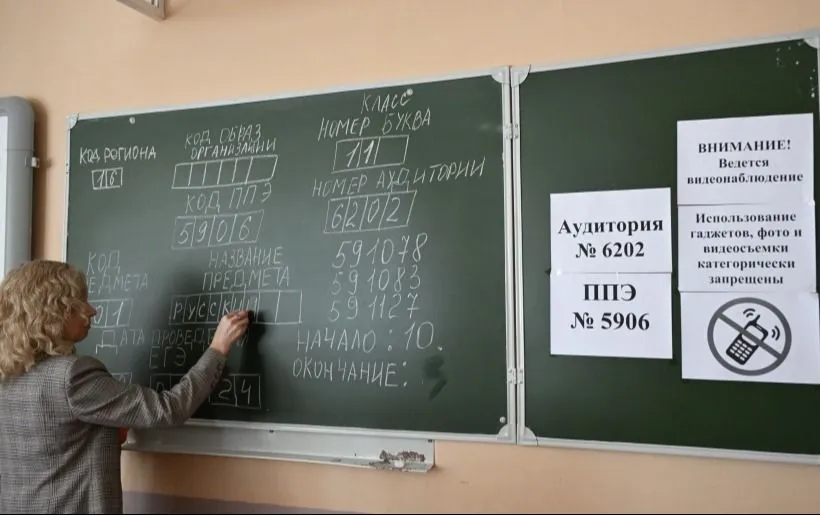 КОД РЕГИОНА
16
КОД ОБРАЗ
ОРГАНИЗАЦИИ
КОД ППЭ
5906
НАЗВАНИЕ
ПРЕДМЕТА
РУССКИЙ
КОД
ЕДМЕТА
01
ДАТА ПРОВЕДЕ
ЕГЭ
24
КЛАСС
НОМЕР БУКВА
11
НОМЕР АУДИТОРИИ
6202
591078
591083
591127
НАЧАЛО: 10.
ОКОНЧАНИЕ:
Аудитория
№ 6202
ППЭ
№ 5906
ВНИМАНИЕ!
Ведется
видеонаблюдение
Использование
гаджетов, фото и
видеосъемки
категорически
запрещены